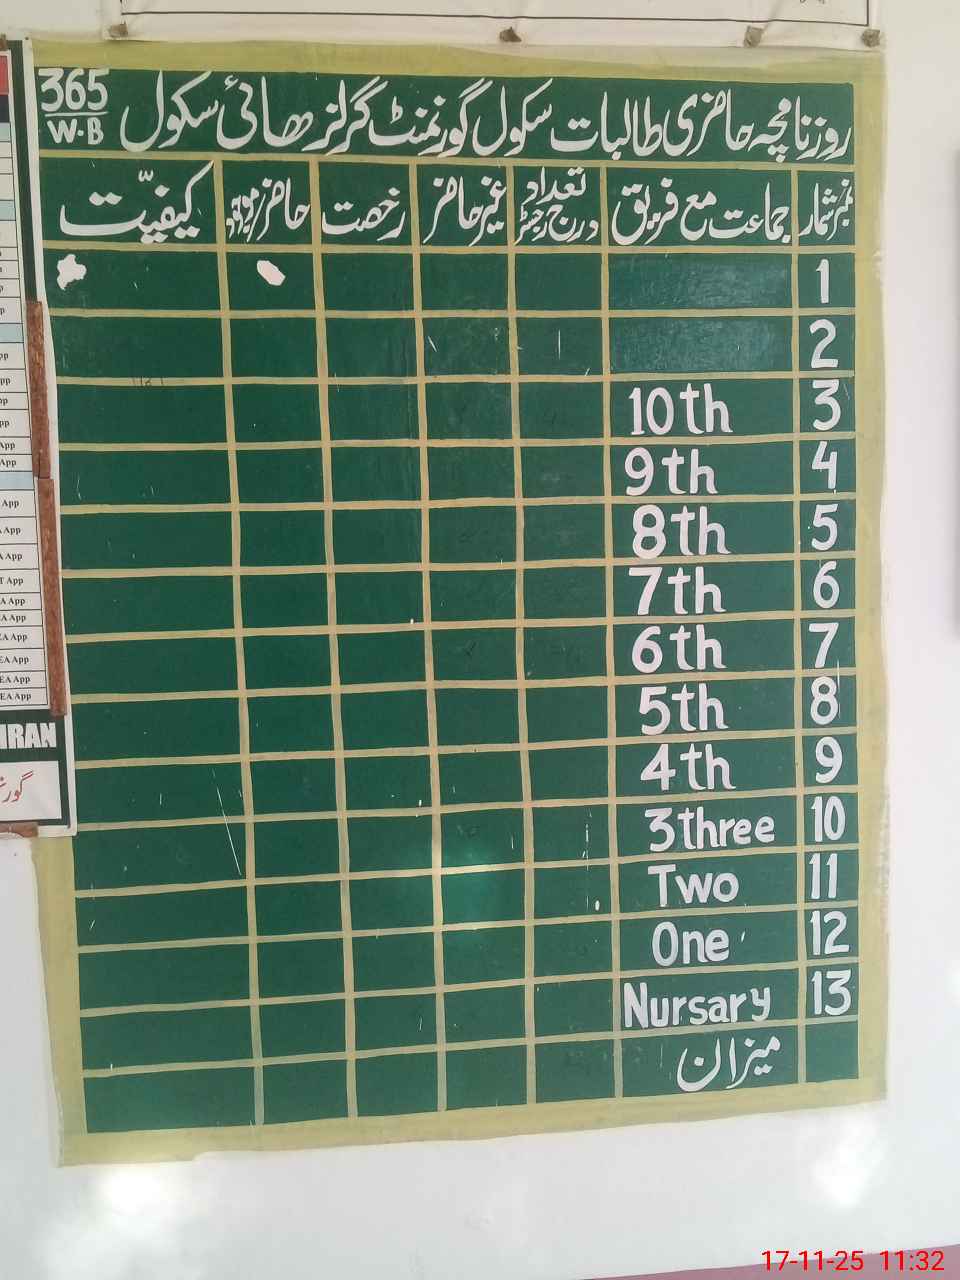 روزنامچہ حاضری طالبات سکول گورنمنٹ گرلز ھائی سکول 365 W.B
نمبر شمار جماعت مع فریق تعداد درج رجسٹر غیر حاضر رخصت حاضر موجود کیفیّت
1
2
3 10th
4 9th
5 8th
6 7th
7 6th
8 5th
9 4th
10 3three
11 Two
12 One
13 Nursary
میزان
App
App
App
App
App
EA App
EA App
EA App
EA App
IRAN
17-11-25 11:32